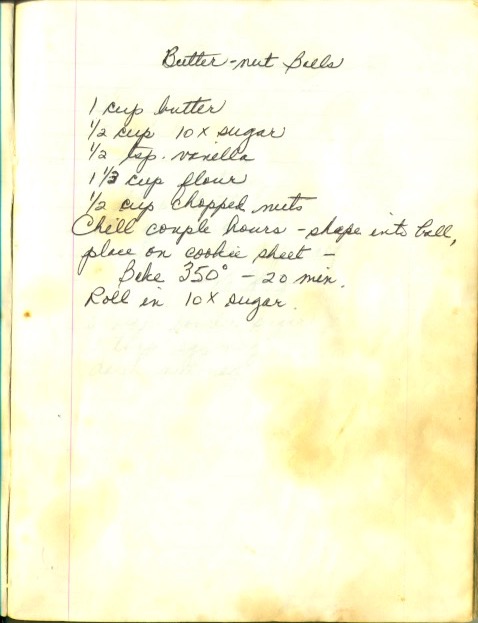 Butter-nut Balls
1 cup butter
1/2 cup 10X sugar
1/2 tsp. vanilla
1 1/3 cup flour
1/2 cup chopped nuts
Chill couple hours - shape into ball,
place on cookie sheet -
Bake 350° - 20 min.
Roll in 10X sugar.